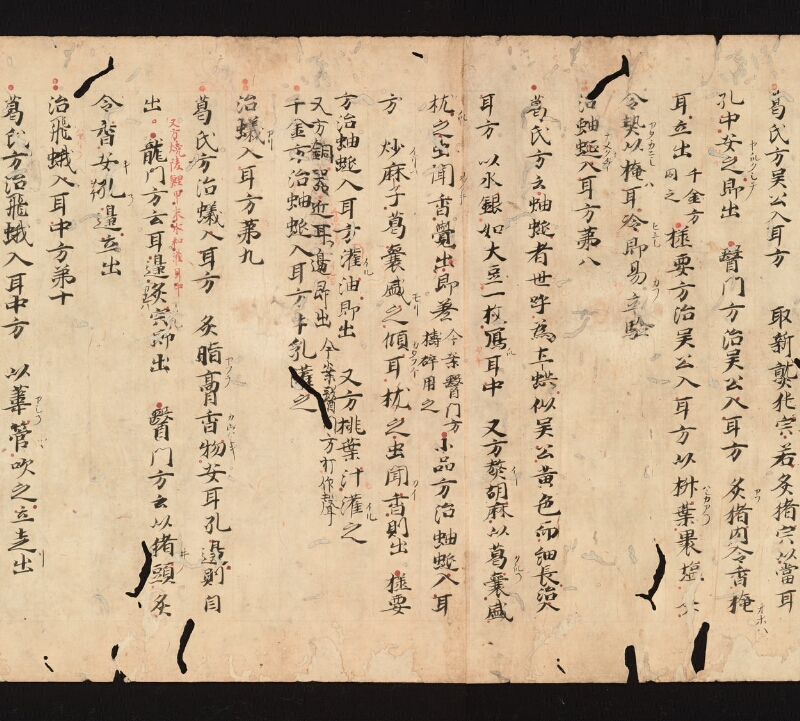 葛氏方吴公入耳方 取新䐗化宍若炙猪宍以當耳
孔中安之即出 醫門方治吴公入耳方 炙猪肉令香掩
耳立出 千金方同之 様要方治吴公入耳方以桝葉裹塩
令熱以掩耳冷即易立驗
治蚰蜒入耳方第八
葛氏方云蚰蜒者世呼為土蛬似吴公黄色而細長治入
耳方 以水銀如大豆一枚寫耳中 又方熬胡麻以葛囊盛
枕之虫聞香覺出即差 今案醫門方擣碎用之 小品方治蚰蜒入耳
方 炒麻子葛囊盛之傾耳枕之虫聞香則出 様要
方治蚰蜒入耳方灌油即出 又方桃葉汁灌之
又方銅器近耳邊即出 今案醫門方打作聲
千金方治蚰蜒入耳方牛乳灌之
治蟻入耳方第九
葛氏方治蟻入耳方 炙脂膏香物安耳孔邊則自
出 龍門方云耳邊炙宍即出 醫門方云以猪頭炙
令香安孔邊立出
治飛蛾入耳中方第十
葛氏方治飛蛾入耳中方 以葦管吹之立走出